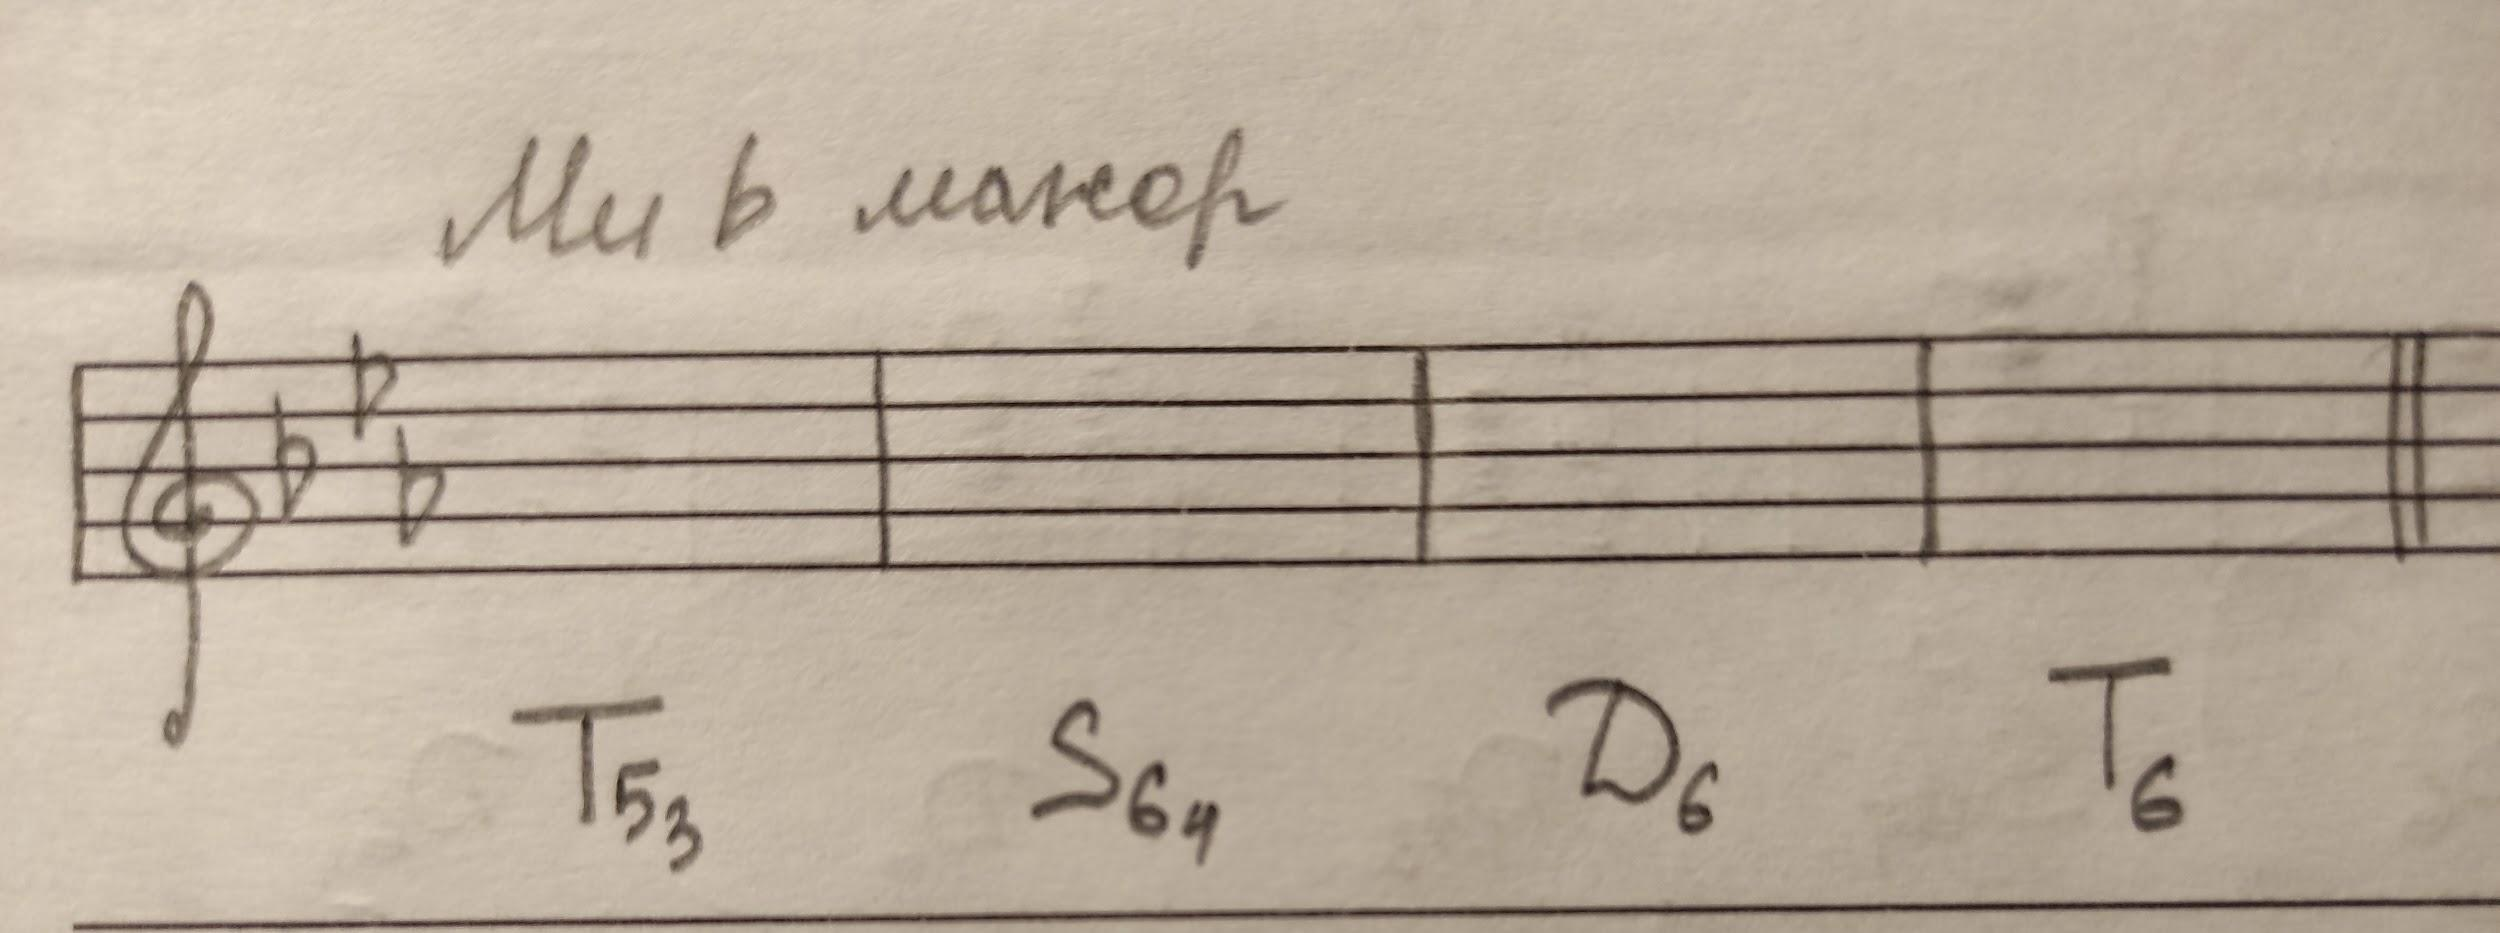 Ми b мажор
T53 S64 D6 T6